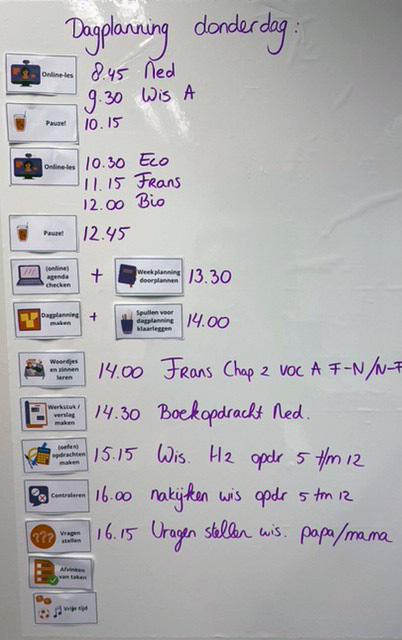 Dagplanning donderdag:
Online-les 8.45 Ned
9.30 Wis A
Pauze! 10.15
Online-les 10.30 Eco
11.15 Frans
12.00 Bio
Pauze! 12.45
(online) agenda checken + Weekplanning doorplannen 13.30
Dagplanning maken + Spullen voor dagplanning klaarleggen 14.00
Woordjes en zinnen leren 14.00 Frans Chap 2 voc A F-N/N-F
Werkstuk / verslag maken 14.30 Boekopdracht Ned.
(oefen) opdrachten maken 15.15 Wis. H2 opdr 5 t/m 12
Controleren 16.00 nakijken wis opdr 5 tm 12
??? Vragen stellen 16.15 Vragen stellen wis. papa/mama
Afvinken van taken
Vrije tijd